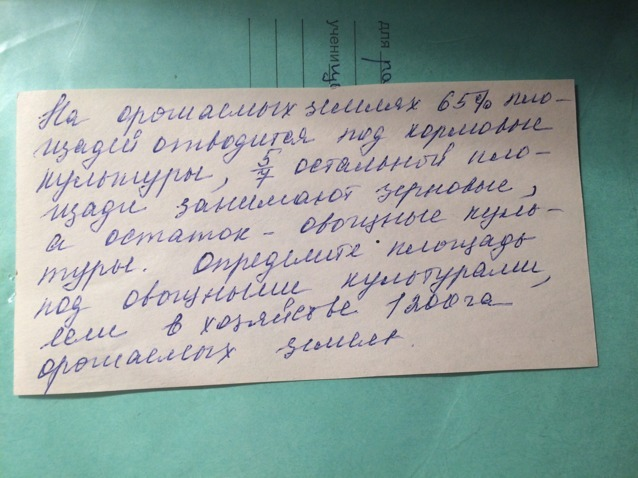 для ра
учениц
На орошаемых землях 65% пло-
щадей отводится под кормовые
культуры, 5/7 остальной пло-
щади занимают зерновые,
а остаток - овощные куль-
туры. Определите площадь
под овощными культурами,
если в хозяйстве 1200га
орошаемых земель.